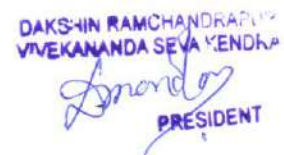 DAKSHIN RAMCHANDRAPUR
VIVEKANANDA SEVA KENDRA
PRESIDENT